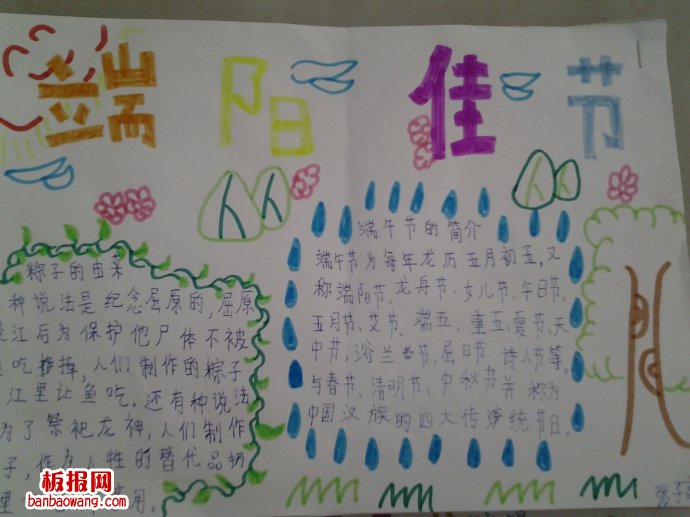 端阳佳节
粽子的由来
种说法是纪念屈原的,屈原
江后为保护他尸体不被
吃掉,人们制作的粽子
江里让鱼吃.还有种说法
为了祭祀龙神,人们制作
子,作为人牲的替代品扔
里 用。
端午节的简介
端午节为每年龙历五月初五,又
称端阳节、龙舟节、女儿节、午日节、
五月节、艾节、端五、重五、夏节、天
中节,浴兰节、屈日节、诗人节等。
与春节、清明节、中秋节并称为
中国汉族的四大传统节日。
板报网
banbaowang.com
张子